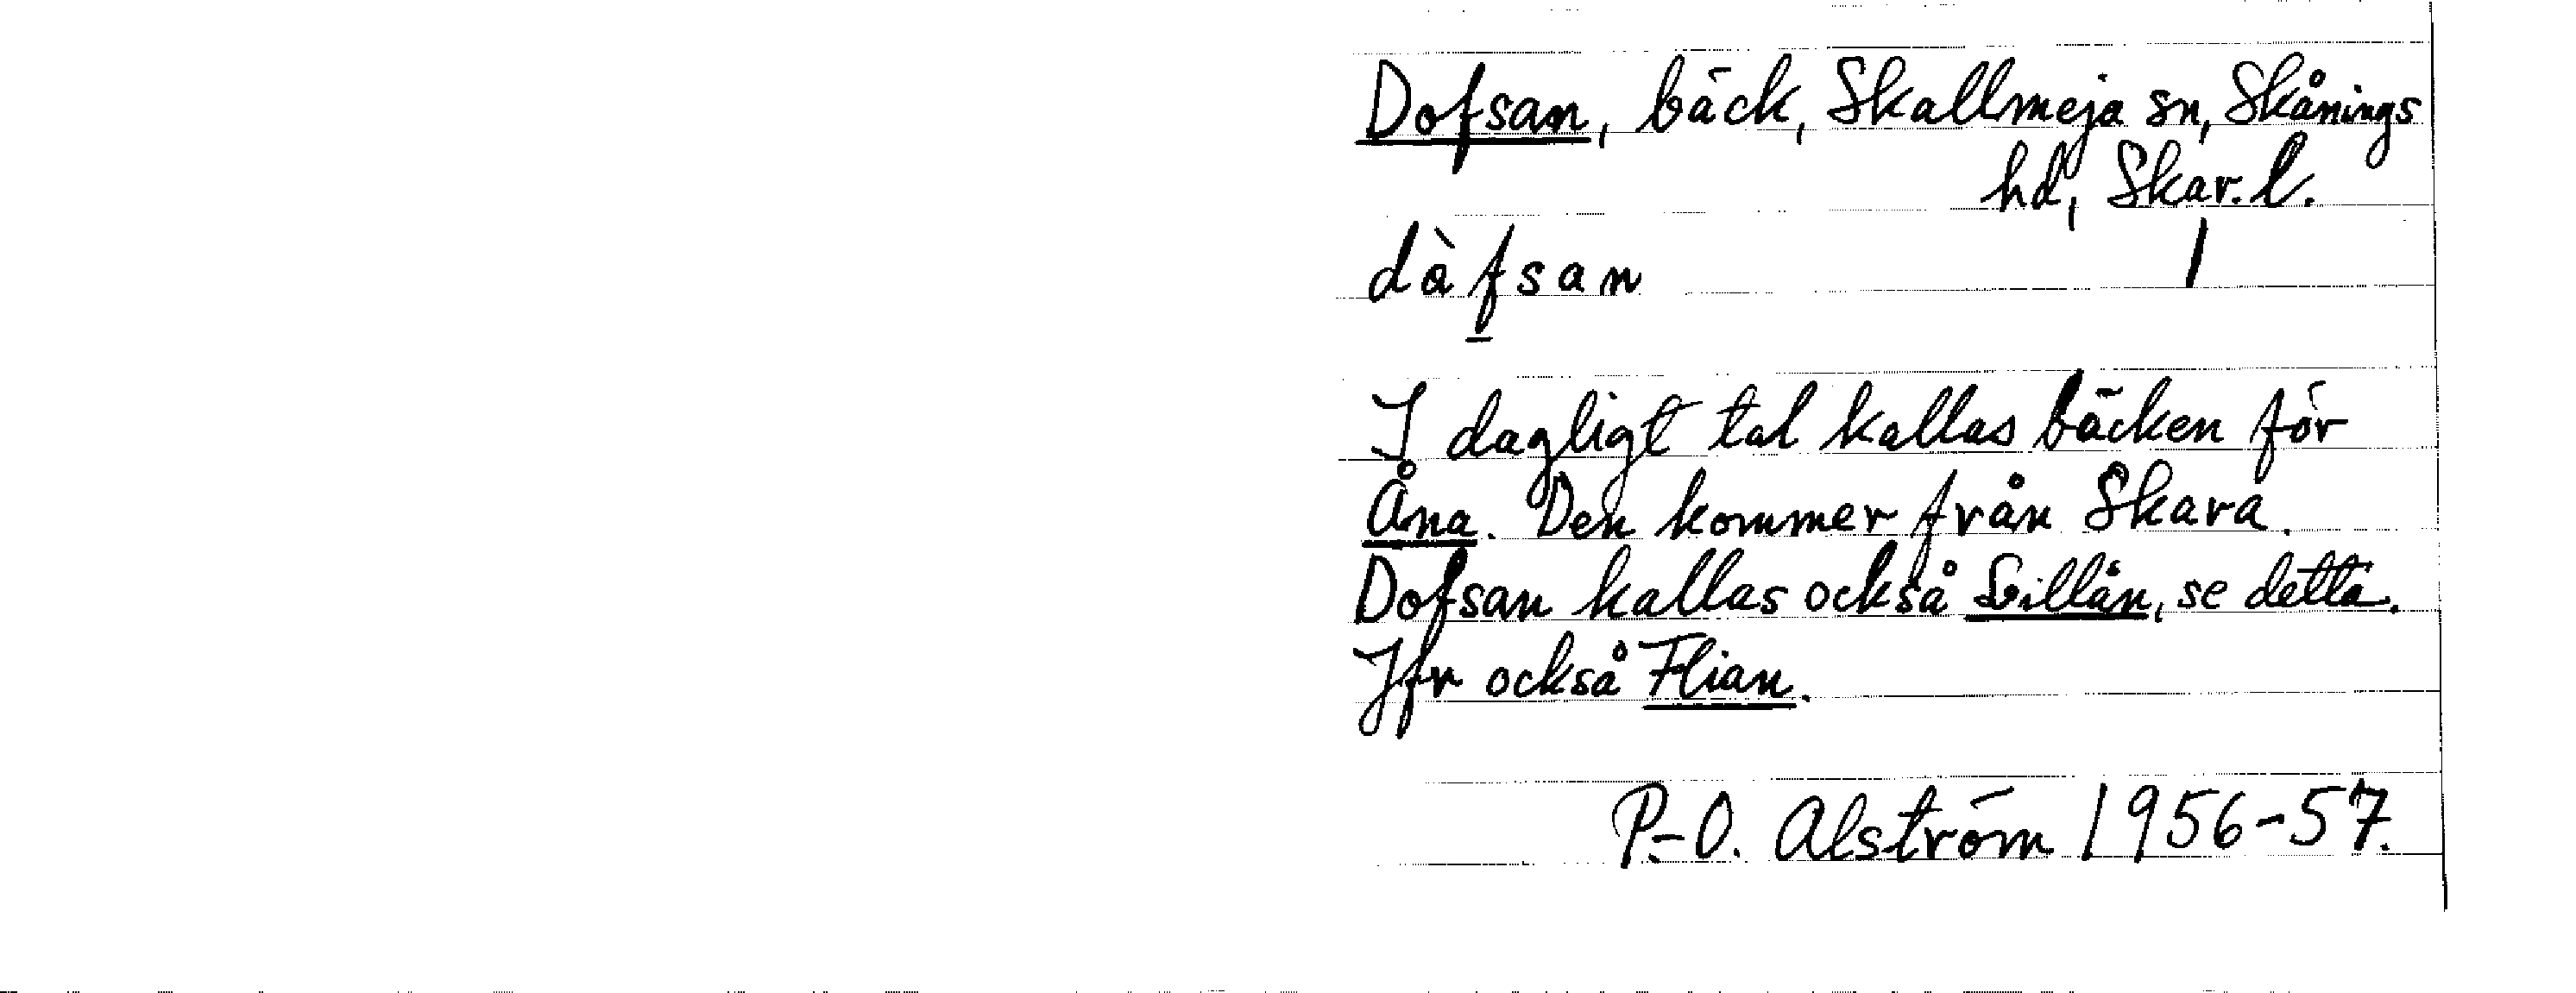 Dofsan, bäck, Skallmeja sn, Skånings
hd, Skar. l.
dàf̱san 1
I dagligt tal kallas bäcken för
Åna. Den kommer från Skara.
Dofsan kallas också Lillån, se detta.
Jfr också Flian.
P.-O. Alström 1956-57.